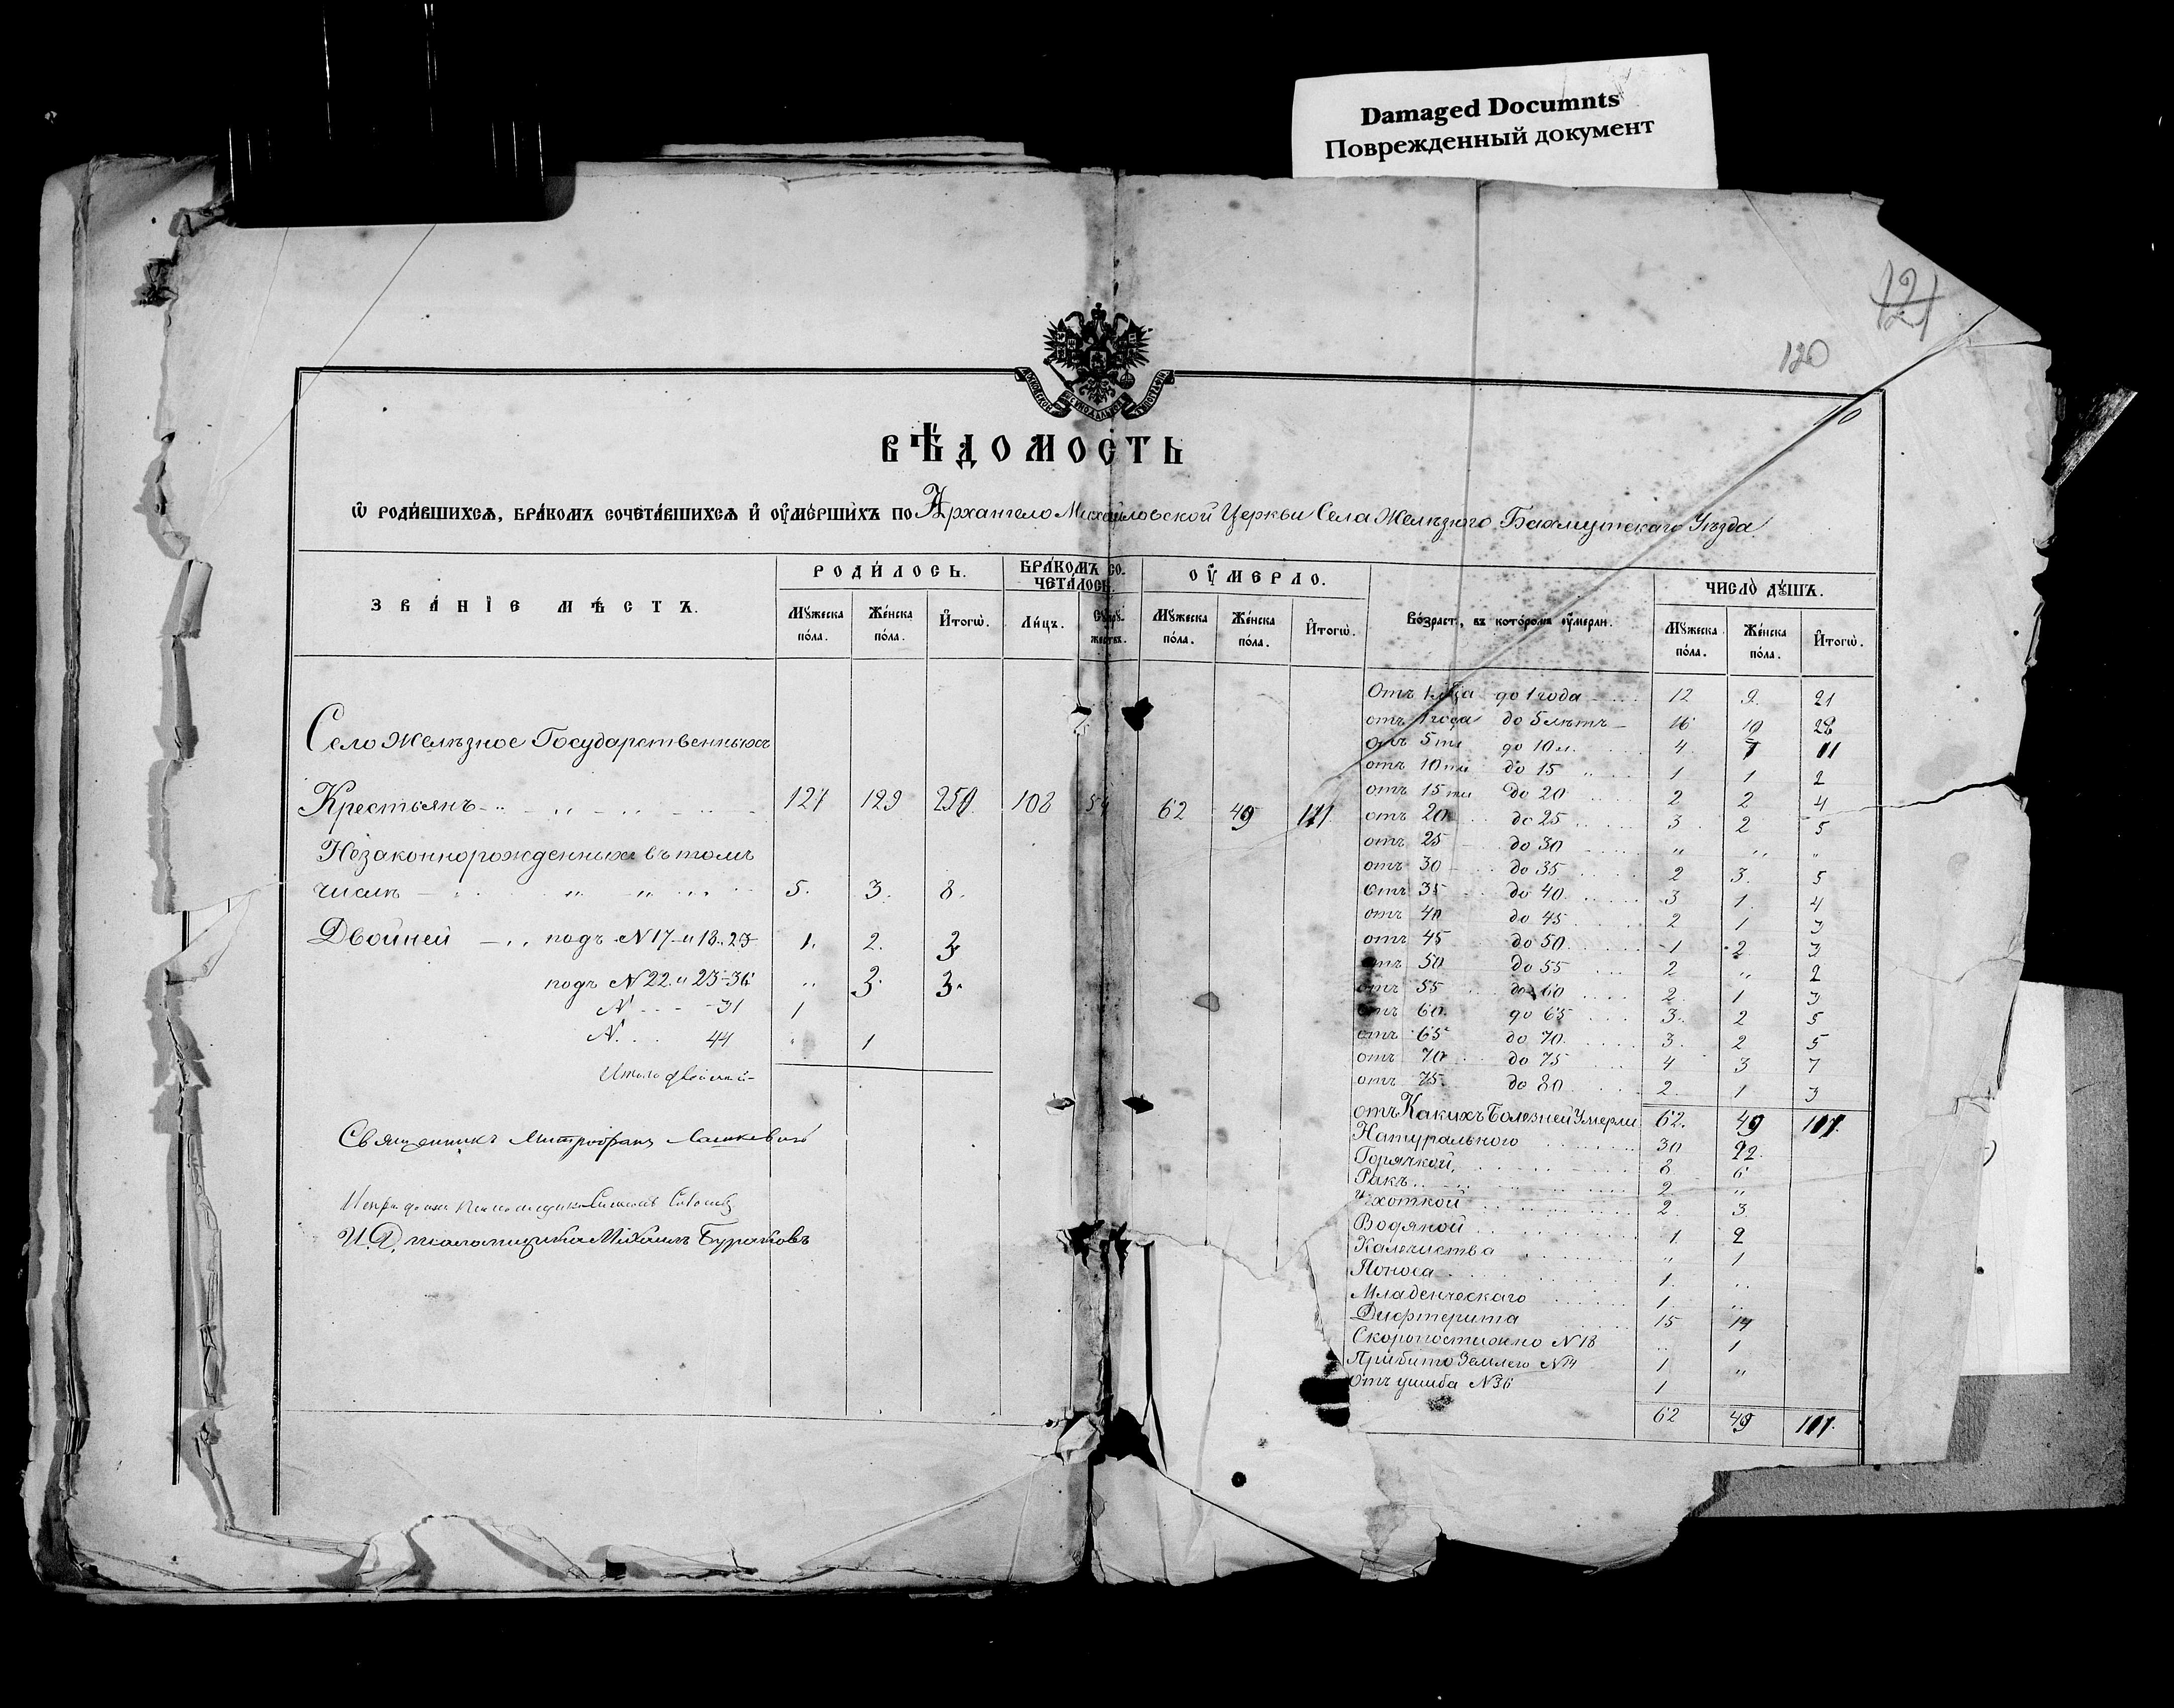 Damaged Documnts
Поврежденный документ
121
120
ВѢДОМОСТЬ
Ѡ РОДИВШИХСѦ, БРАКОМЪ СОЧЕТАВШИХСѦ И ОУМЕРШИХЪ ПО Архангело Михайловской Церкви Села Желѣзнаго Бахмутскаго Уѣзда.
ЗВАНІЕ МѢСТЪ.
РОДИЛОСЬ.
БРАКОМЪ СО-
ЧЕТАЛОСЬ.
ОУМЕРЛО.
Возрастъ, въ которомъ оумерли.
ЧИСЛО ДУШЪ.
Мужеска пола. Женска пола. Итогѡ. Лицъ. Супружествъ. Мужеска пола. Женска пола. Итогѡ. Мужеска пола. Женска пола. Итогѡ.
Село Желѣзное Государственныхъ
Крестьянъ 127 129 108 54 62 49 111
Незаконнорожденныхъ въ томъ
числѣ 5. 3. 8.
Двойней подъ N 17 и 18. 23 1. 2. 3
подъ N 22 и 23-36 " 3. 3.
N 31 1
N. 44 " 1
Итого двойней
Священникъ Митрофанъ
И. Д. псаломщика Михаилъ Бураковъ
Отъ до 1 года 12 9. 21
отъ 1 года до 5 лѣтъ 16 28
отъ 5ти до 10 л. 4. 7 11
отъ 10ти до 15 " 1 1 2
отъ 15ти до 20 2 2 4
отъ 20 до 25 3. 2 5
отъ 25 до 30 " " "
отъ 30 до 35 2 3. 5
отъ 35 до 40 3 1. 4
отъ 40 до 45 2 1 3
отъ 45 до 50 1 2 3
отъ 50 до 55 2 " 2
отъ 55 до 60 2. 1 3
отъ 60 до 65 3. 2 5
отъ 65 до 70 3. 2 5
отъ 70 до 75 4 3 7
отъ 75 до 80 2. 1 3
отъ Какихъ Болезней Умерли 62. 49 111.
Натуральнаго 30 22.
Горячкой. 8 6
Ракъ 2 "
Чихоткой 2. 3
Водяной 1. 2
Калечиства " 1
Поноса 1. "
Младенческаго 1. "
Дифтерита 15 14
Скоропостижно N 18 " 1
Прибито Землею N 14 1 "
Отъ ушиба N 36 1
62 49 111.